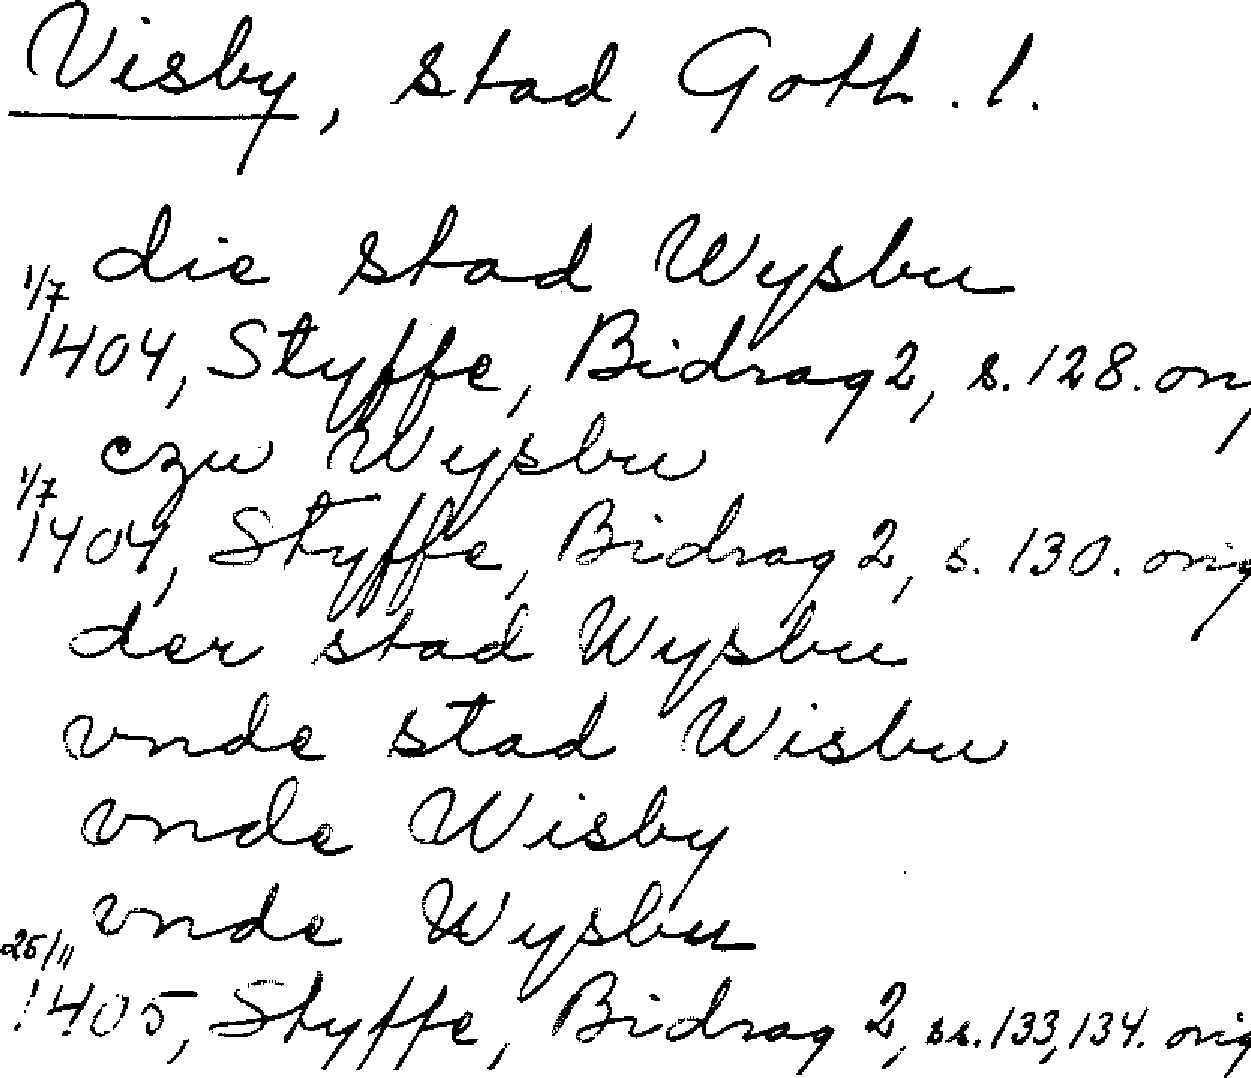 Visby, stad, Gotl. l.
die stad Wysbu
1/7
1404, Styffe, Bidrag 2, s. 128. or
czu Wysbu
1/7
1404, Styffe, Bidrag 2, s. 130. orig
der stad Wysbu
vnde stad Wisbu
vnde Wisby
vnde Wysbu
25/11
1405, Styffe, Bidrag 2, ss. 133, 134. orig